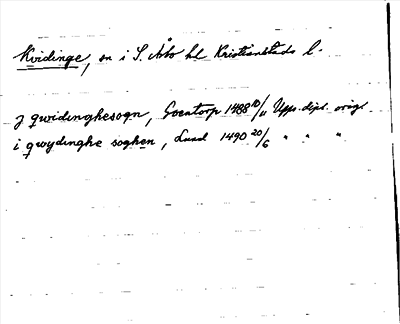 Kvidinge, sn i S. Åsbo hd Kristianstads l.
J qwidinghesogn, Goentorp 1488 10/11 Upps. dipl. orig.
i qwydinghe soghen, Lund 1490 20/6 " " "